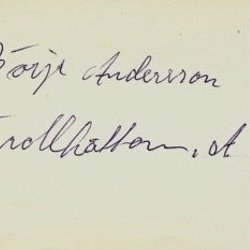 Börje Andersson
Trollhättan, A